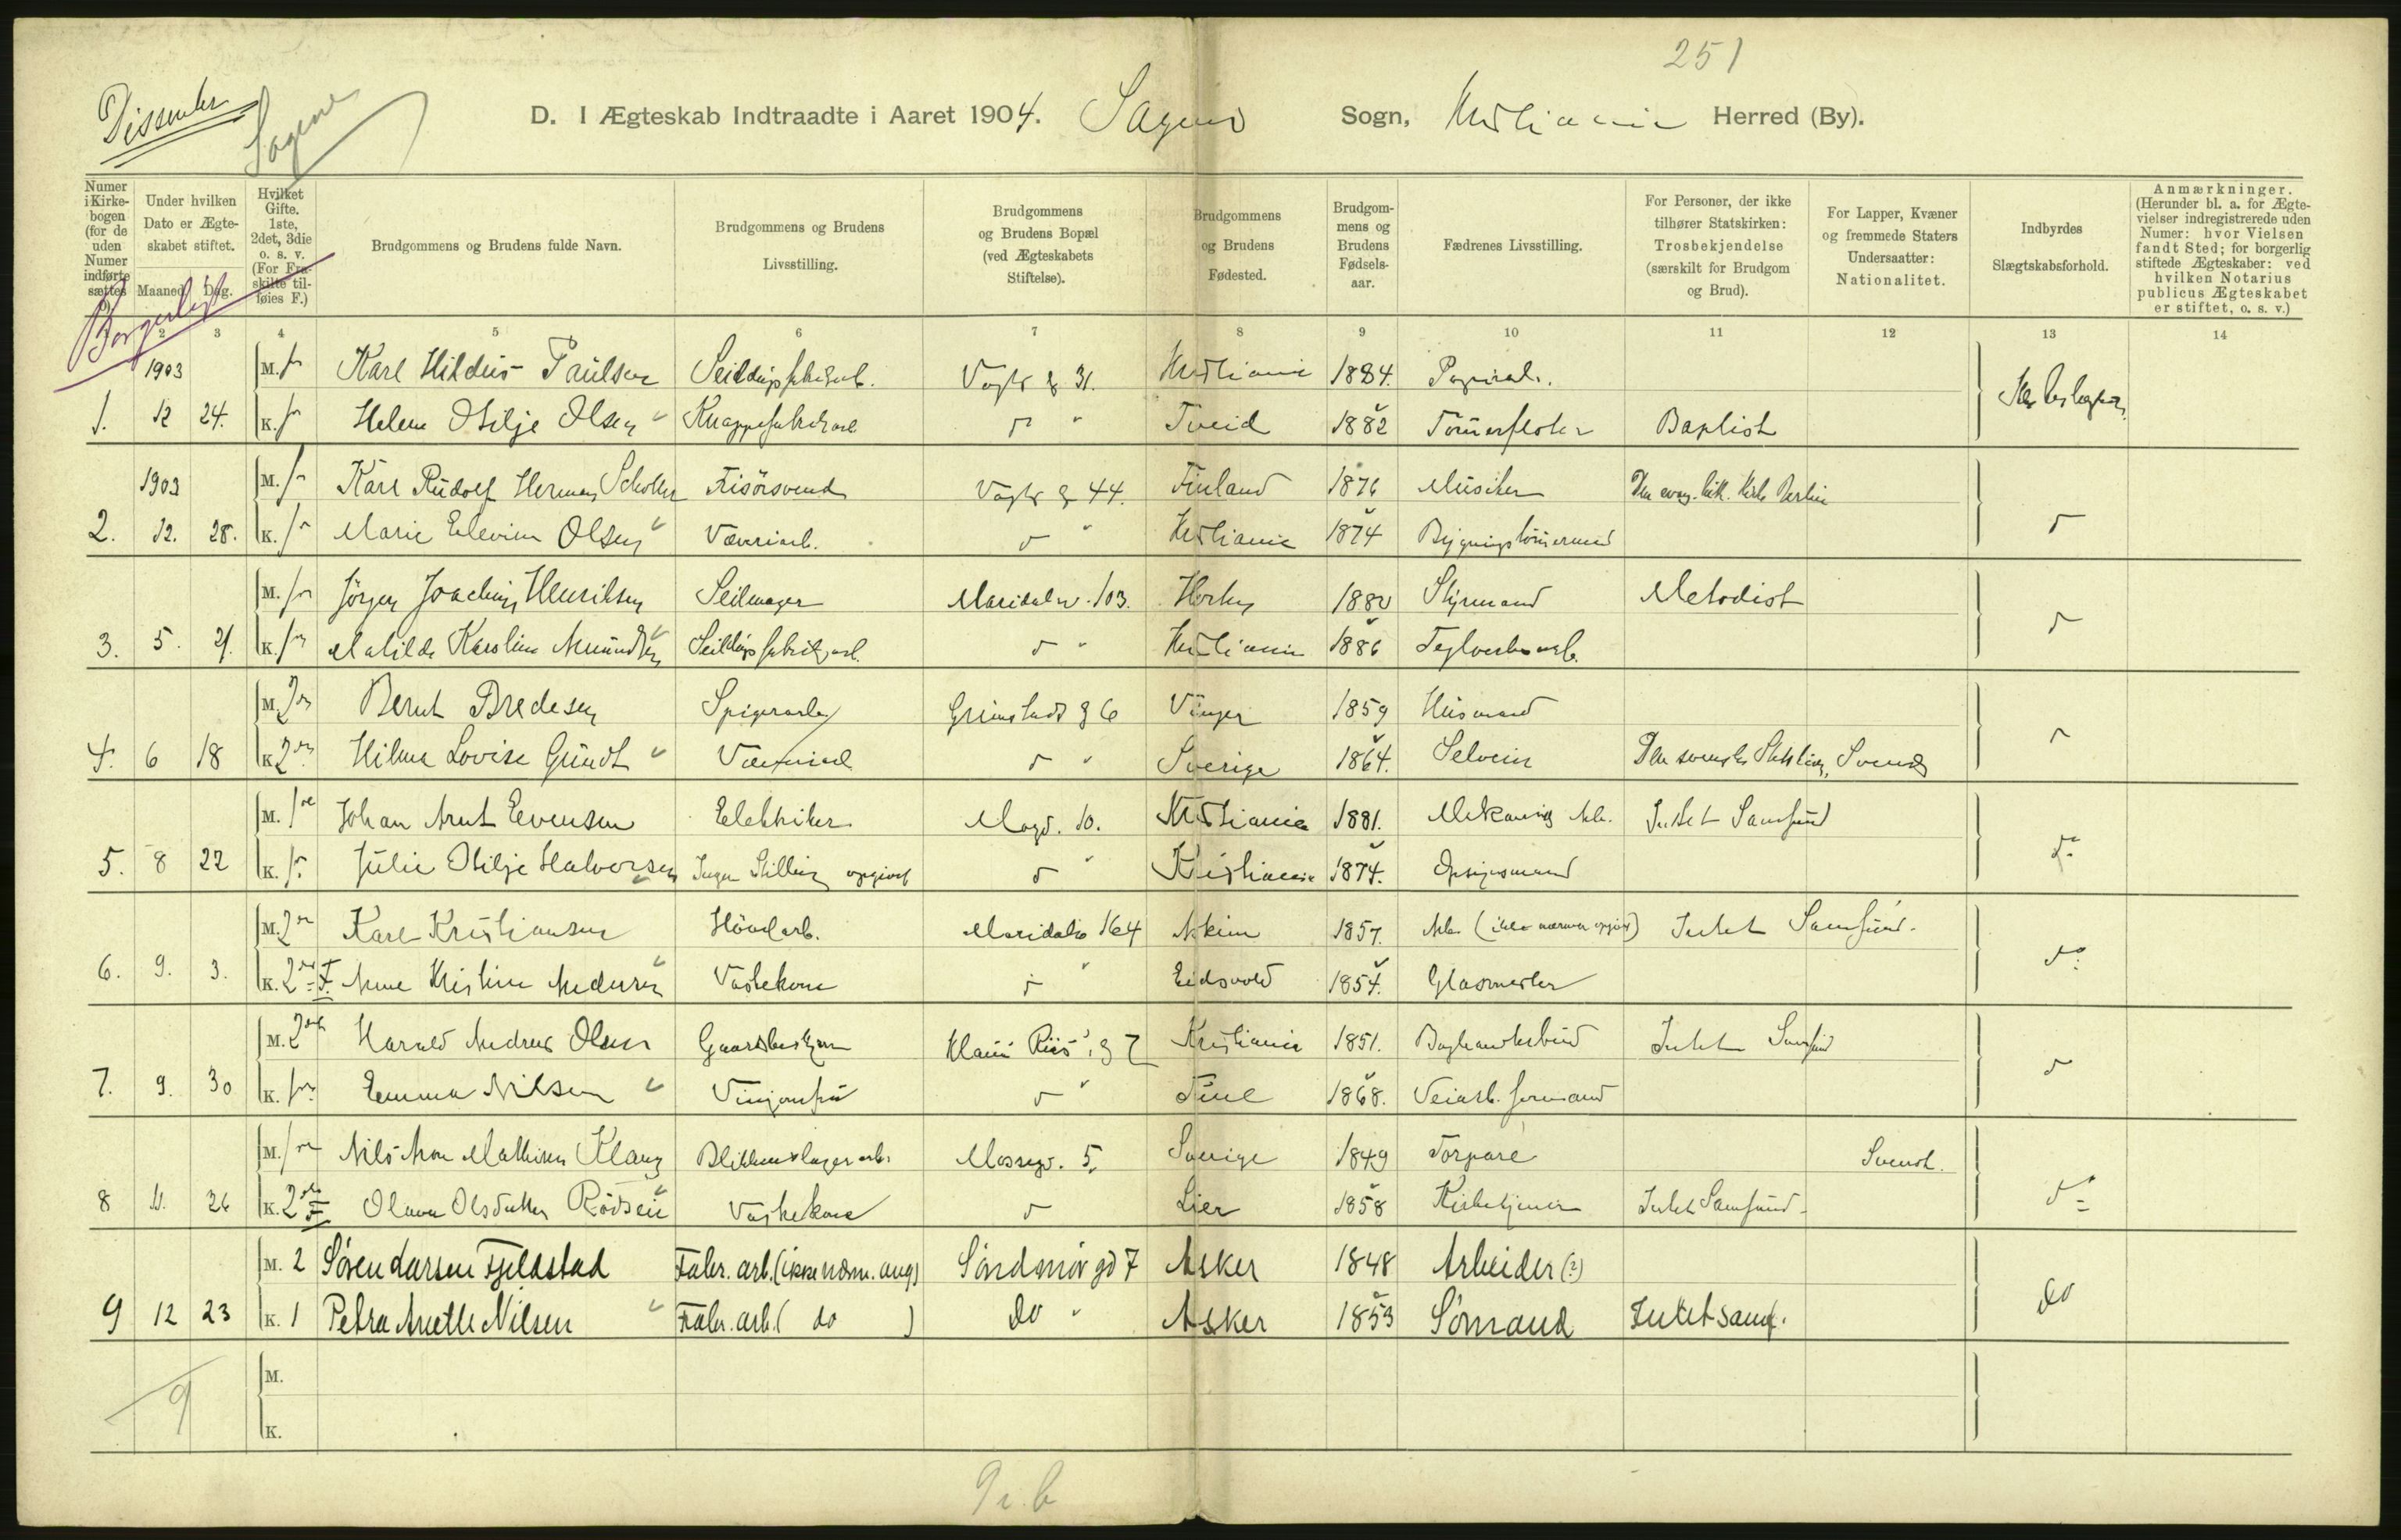 251
Dissenter
Sagene
D. I Ægteskab Indtraadte i Aaret 1904. Sagene Sogn, Kristiania Herred (By).
Numer i Kirkebogen (for de uden Numer indførte sættes
Under hvilken Dato er Ægteskabet stiftet.
Maaned. Dag.
Hvilket Gifte. 1ste, 2det, 3die o. s. v. (For Fraskilte tilføies F.)
Brudgommens og Brudens fulde Navn.
Brudgommens og Brudens Livsstilling.
Brudgommens og Brudens Bopæl (ved Ægteskabets Stiftelse).
Brudgommens og Brudens Fødested.
Brudgommens og Brudens Fødselsaar.
Fædrenes Livsstilling.
For Personer, der ikke tilhører Statskirken: Trosbekjendelse (særskilt for Brudgom og Brud).
For Lapper, Kvæner og fremmede Staters Undersaatter: Nationalitet.
Indbyrdes Slægtskabsforhold.
Anmærkninger. (Herunder bl. a. for Ægtevielser indregistrerede uden Numer: hvor Vielsen fandt Sted; for borgerlig stiftede Ægteskaber: ved hvilken Notarius publicus Ægteskabet er stiftet, o. s. v.)
Borgerligt
2 3 4 5 6 7 8 9 10 11 12 13 14
1903 M. Karl Hildus Paulsen Seildugsfabrikarb. Vogts g 31. Kristiania 1884. Papirarb.
1. 12 24. K. Helene Otilje Olsen Knappefabrikarb Tveid 1882 Tømmerfløter Baptist
1903 M. Karl Rudolf Herman Scholler Frisørsvend Vogts g 44. Finland 1876 Musiker Den evang. luth. Kirke Berlin
2. 12. 28. K. Marie Elevine Olsen Væveriarb. Kristiania 1874 Bygningstømmermand
M. Jørgen Joachim Henriksen Seilmager Maridalsv. 103. Horten 1880 Styrmand Metodist
3. 5. 21. K. Matilde Karoline Amundsen Seildugsfabrikarb. Kristiania 1886 Teglverksarb.
M. 2den Bernt Bredesen Spigerarb Grimstads g 6 Vinger 1859 Husmand
4. 6 18 K. 2den Hilma Lovise Gundt Væveriarb Sverige 1864. Selveier Den svenske Svensk
M. 1ste Johan Arnt Evensen Elektriker Mogs. 10. Kristiania 1881. Mekanisk Arb. Intet Samfund
5. 8 22 K. Julie Otilje Halvorsen Ingen Stilling opgivet Kristiania 1874. Opsynsmand
M. 2den Karl Kristiansen Høvlarb. Maridalsv 164 Askim 1857. Arb. (ikke nærmere opgivet) Intet Samfund.
6. 9. 3. K. 2den F. Anne Kristine Andersen Vaskekone Eidsvold 1854. Glasmester
M. 2den Harald Andreas Olsen Gaardbestyrer Klaus Riis' g 7 Kristiania 1851. Intet Samfund
7. 9. 30 K. Emma Nilsen Kristiania 1868. Veiarb. formand
M. Nils Aron Mathisen Klang Blikkenslagerarb. Mosseg. 5. Sverige 1849 Torpare Svensk.
8 11. 26 K. 2den F. Olava Olsdatter Rødseth Vaskekone Lier 1858 Kirketjener Intet Samfund
M. 2 Søren Larsen Fjeldstad Fabr. arb. (ikke nærm. ang) Søndmør gd 7 Asker 1848 Arbeider (?)
9 12 23 K. 1 Petra Anette Nilsen Fabr. arb. ( do ) do " Asker 1853 Sømand Intet samf. do
M.
9
K.
9 r. b